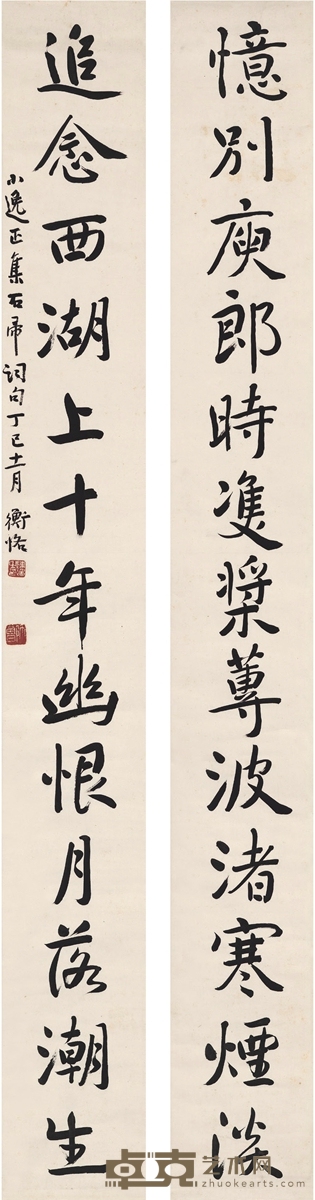 憶別庾郎時雙槳蓴波渚寒煙淡
追念西湖上十年幽恨月落潮生
小逸正集石帚詞句丁巳十一月 衡恪
卓克艺术网
zhuokearts.com